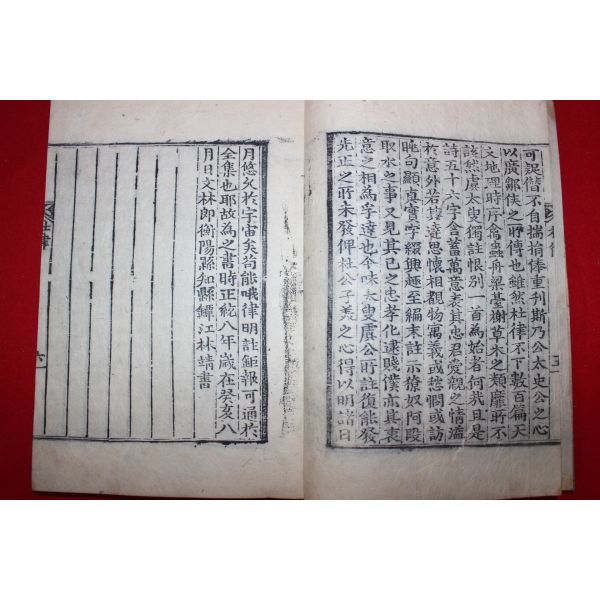 可誤僭不自揣捐俸重刊斯乃公太史公之心
以廣鄒俠之所傳也雖然杜律不下數百徧天
文地理時序禽蟲舟梁䑓榭草木之類靡所不
該然虞太叟獨註恨别一首為始者何哉且是
詩五十六字含蓄萬意表其忠君愛親之情溢
於意外若其遣思懷相覩物寓義或愁憫或訪
眺句顯真實字綴興趣至編末註示獠奴阿段
取水之事又見其己之忠孝化逮賤僕亦其衷
意之相為孚達也今味太叟虞公所註復能發
先正之所未發俾杜公子羙之心得以明諸日
杜律
五
月悠久於宇宙矣苟能哦律明註鉅報可通於
全集也耶故為之書時正統八年歲在癸亥八
月日文林郎衡陽縣知縣鐔江林靖書
杜律
六